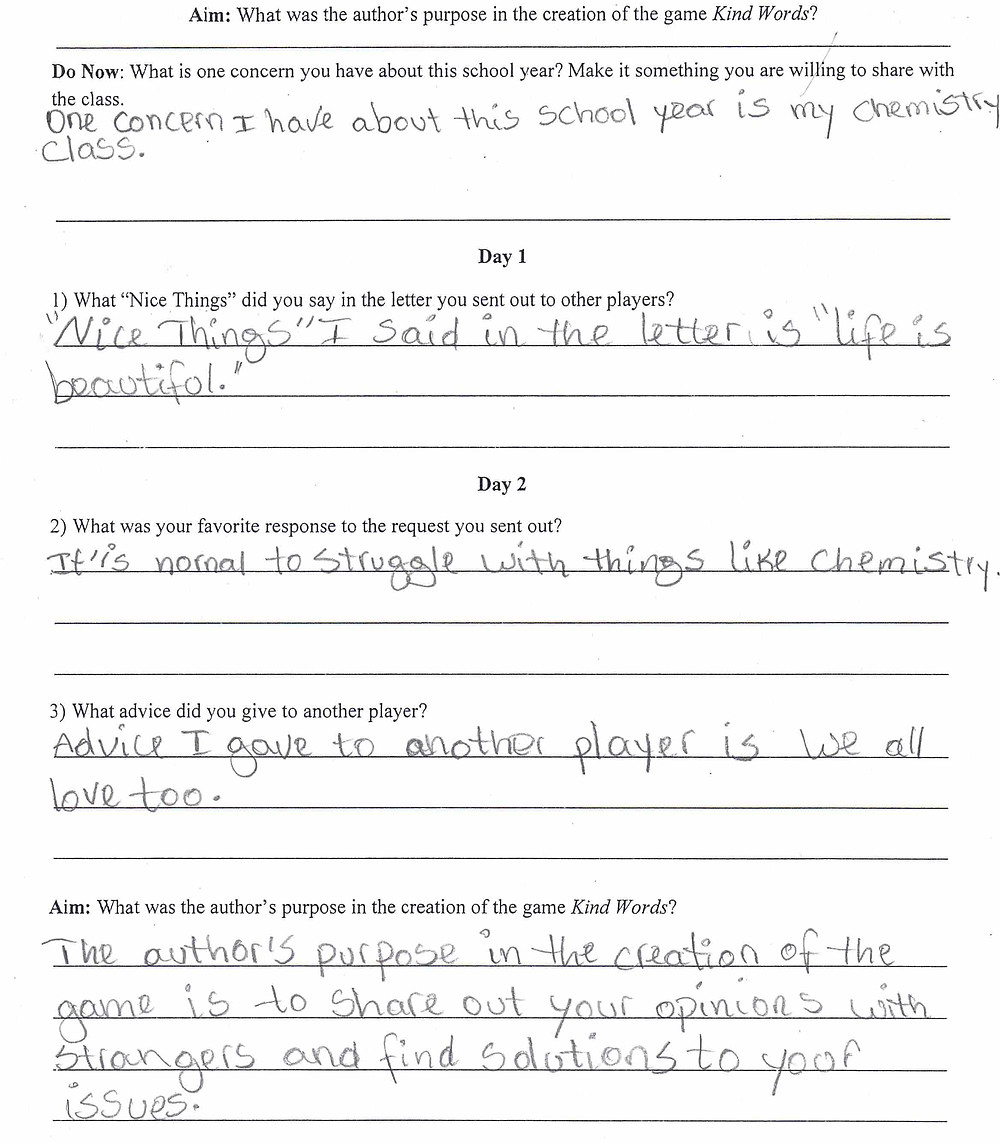 Aim: What was the author's purpose in the creation of the game Kind Words?
Do Now: What is one concern you have about this school year? Make it something you are willing to share with
the class.
One concern I have about this school year is my chemistry
class.
Day 1
1) What “Nice Things” did you say in the letter you sent out to other players?
"Nice Things" I said in the letter is "life is
beautiful."
Day 2
2) What was your favorite response to the request you sent out?
It's normal to struggle with things like chemistry.
3) What advice did you give to another player?
Advice I gave to another player is we all
love too.
Aim: What was the author's purpose in the creation of the game Kind Words?
The author's purpose in the creation of the
game is to share out your opinions with
strangers and find solutions to your
issues.